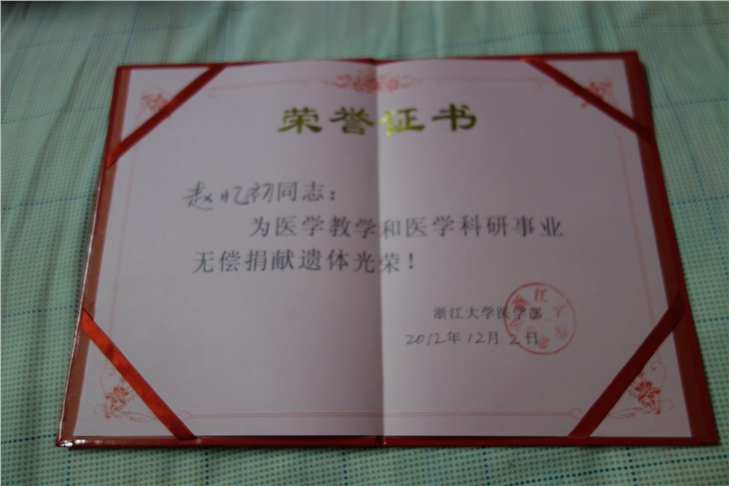 荣誉证书
赵忆初同志：
为医学教学和医学科研事业
无偿捐献遗体光荣！
浙江大学医学部
2012年12月2日